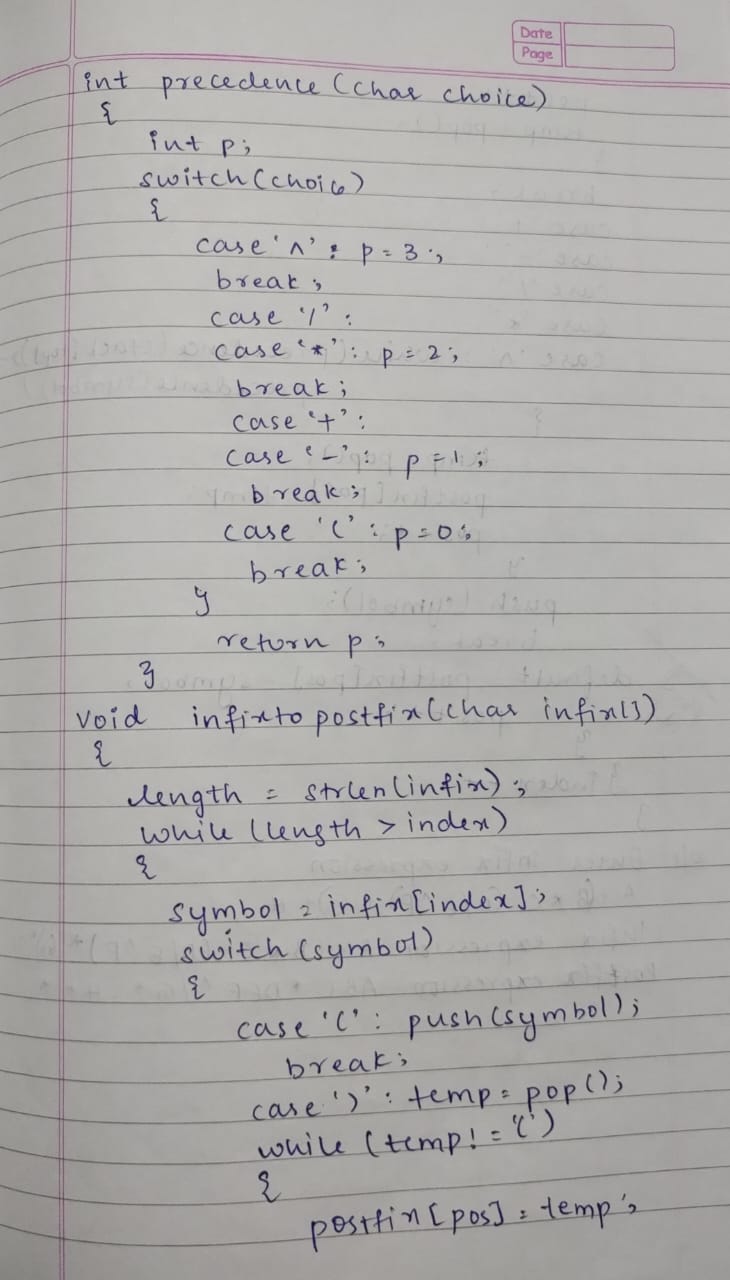 Date
Page
int precedence (char choice)
{
int p;
switch(choice)
{
case '^' : p = 3;
break;
case '/' :
case '*' : p = 2;
break;
case '+' :
case '-' : p = 1;
break;
case '(' : p = 0;
break;
}
return p;
}
void infixtopostfix(char infix[])
{
length = strlen(infix);
while (length > index)
{
symbol = infix[index];
switch (symbol)
{
case '(' : push(symbol);
break;
case ')' : temp = pop();
while (temp != '(')
{
postfix[pos] = temp;